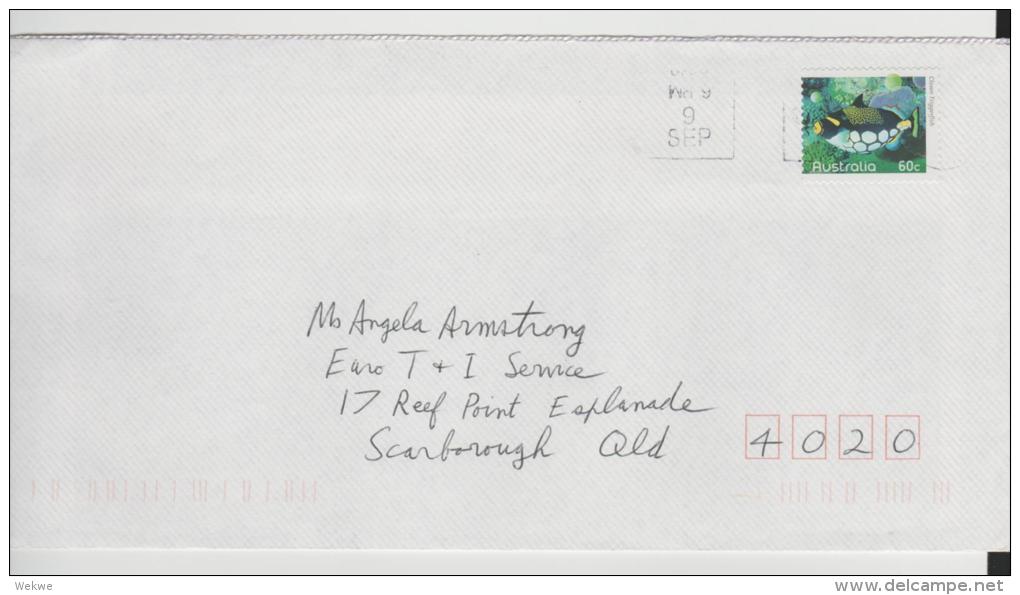 9
SEP
Clown Triggerfish
Australia 60c
Ms Angela Armstrong
Euro T + I Service
17 Reef Point Esplanade
Scarborough Qld 4020
Wekwe
www.delcampe.net